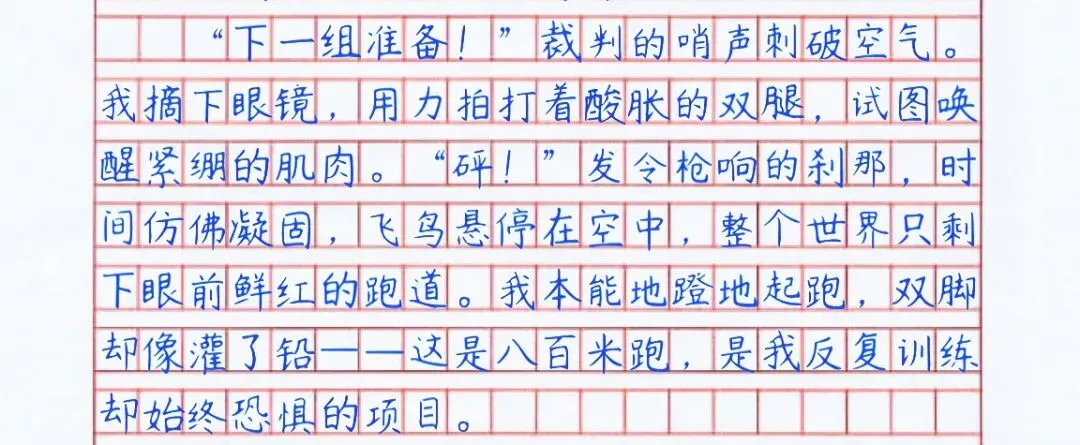 “下一组准备！”裁判的哨声刺破空气。
我摘下眼镜，用力拍打着酸胀的双腿，试图唤
醒紧绷的肌肉。“砰！”发令枪响的刹那，时
间仿佛凝固，飞鸟悬停在空中，整个世界只剩
下眼前鲜红的跑道。我本能地蹬地起跑，双脚
却像灌了铅——这是八百米跑，是我反复训练
却始终恐惧的项目。